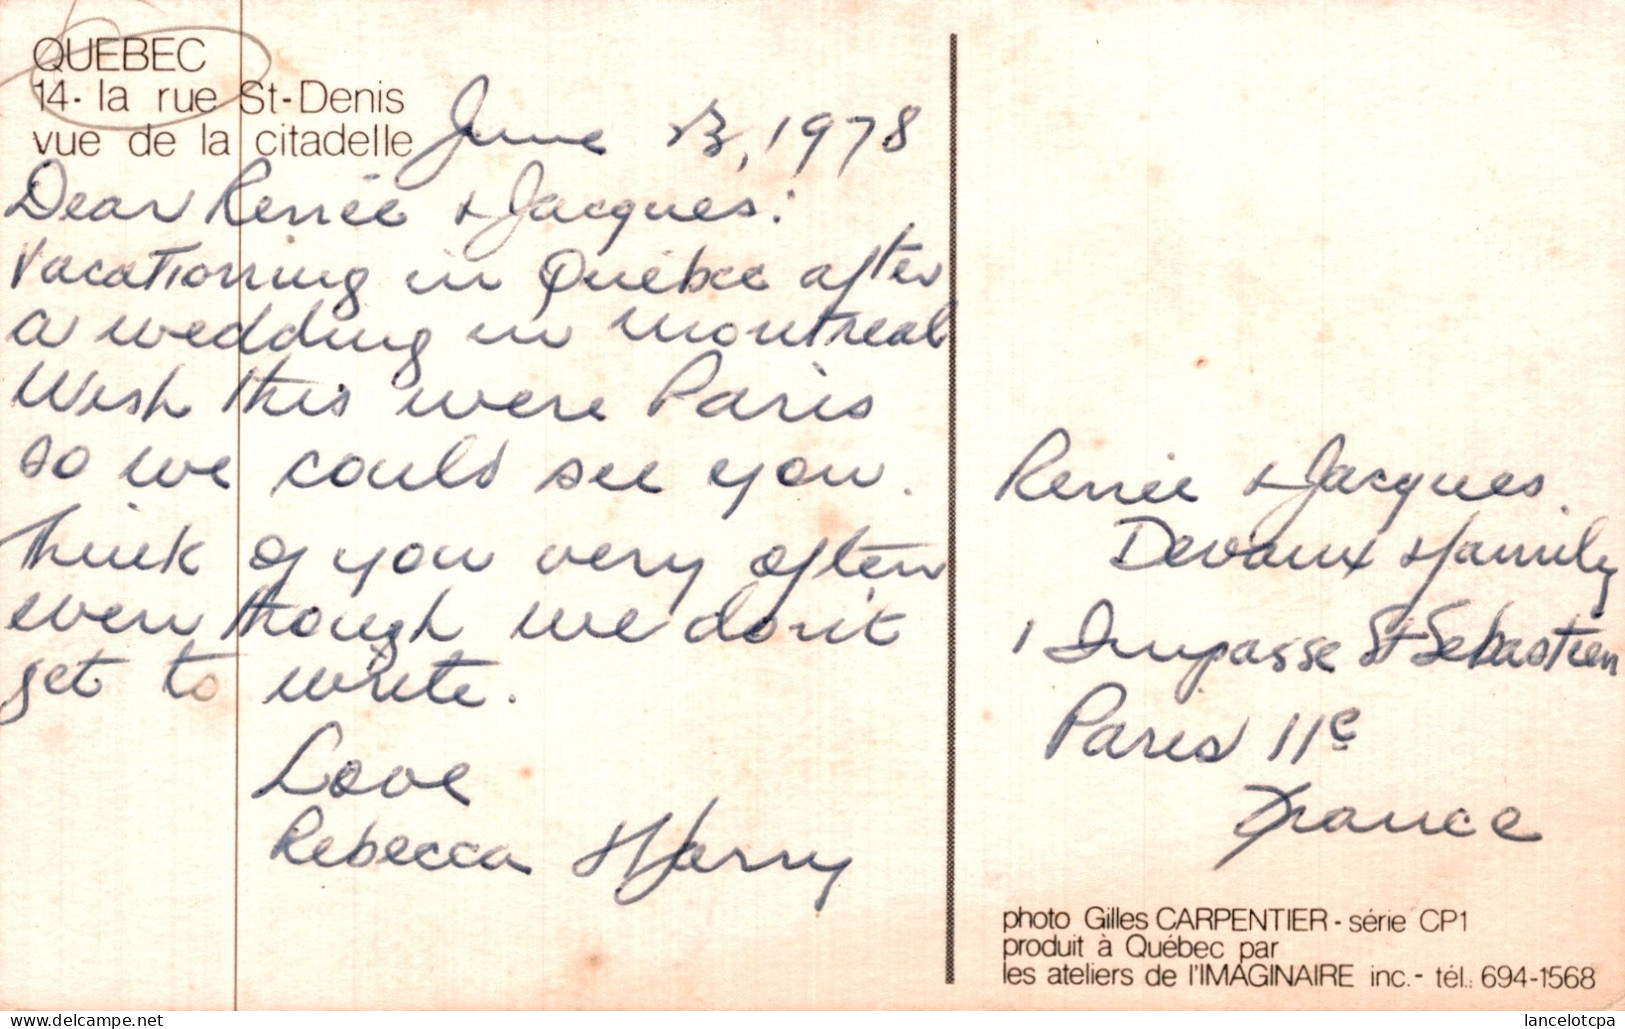 QUEBEC
14- la rue St-Denis
vue de la citadelle
June 23, 1978
Dear Renée & Jacques:
Vacationing in Québec after
a wedding in Montreal
Wish this were Paris
so we could see you.
Think of you very often
even though we don't
get to write.
Love
Rebecca & Harry
Renée & Jacques
Devaux & family
1 Impasse St Sebastien
Paris 11e
France
photo Gilles CARPENTIER - série CP1
produit à Québec par
les ateliers de l'IMAGINAIRE inc.- tél.: 694-1568
Postcards for sale on delcampe.net
lancelotcpa